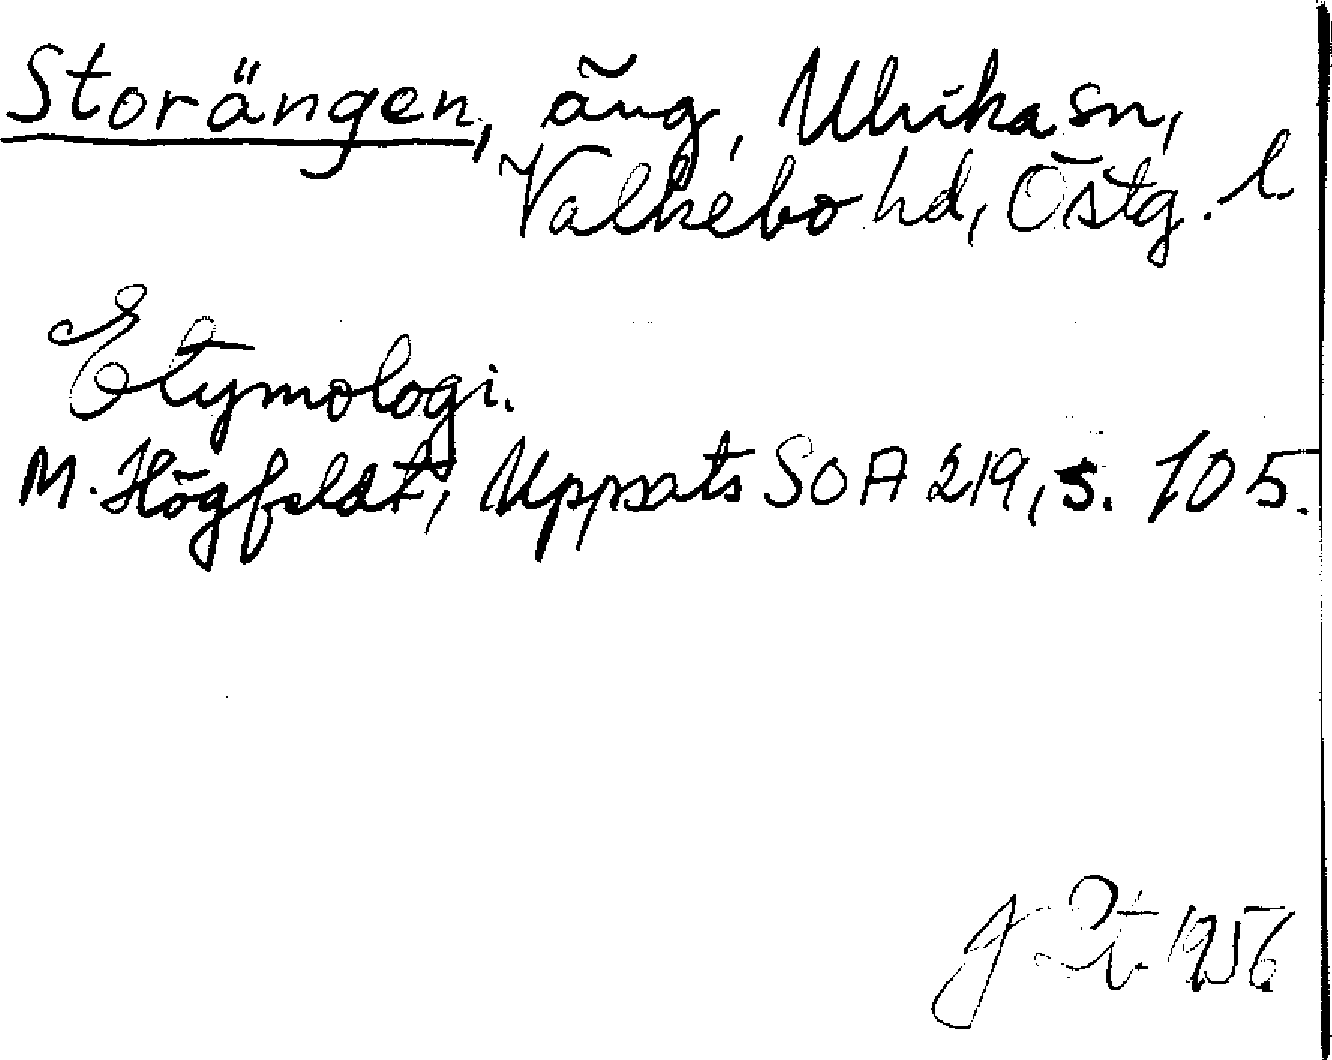 Storängen, äng, Ulrika sn,
Valkebo hd, Östg. l.
Etymologi.
M. Högfeldt, Uppsats SOA 219, s. 105.
1956